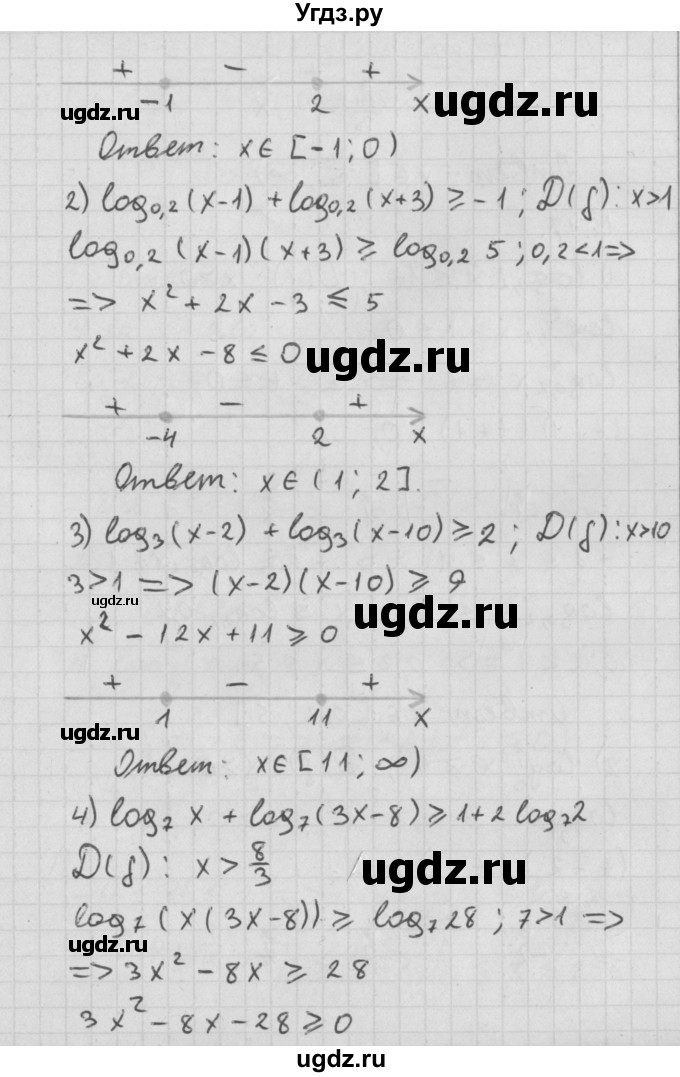 Угдз.ру
+ − +
−1 2 x
ugdz.ru ugdz.ru
Ответ: x ∈ [−1; 0)
2) log₀,₂(x−1) + log₀,₂(x+3) ⩾ −1; D(f): x>1
log₀,₂(x−1)(x+3) ⩾ log₀,₂ 5; 0,2<1 =>
=> x² + 2x − 3 ⩽ 5
x² + 2x − 8 ⩽ 0
ugdz.ru
+ − +
−4 2 x
Ответ: x ∈ (1; 2].
3) log₃(x−2) + log₃(x−10) ⩾ 2; D(f): x>10
3>1 => (x−2)(x−10) ⩾ 9
ugdz.ru ugdz.ru
x² − 12x + 11 ⩾ 0
+ − +
1 11 x
ugdz.ru
Ответ: x ∈ [11; ∞)
4) log₇ x + log₇(3x−8) ⩾ 1+2 log₇2
D(f): x > 8/3
ugdz.ru
log₇(x(3x−8)) ⩾ log₇28; 7>1 =>
ugdz.ru
=> 3x² − 8x ⩾ 28
3x² − 8x − 28 ⩾ 0
ugdz.ru